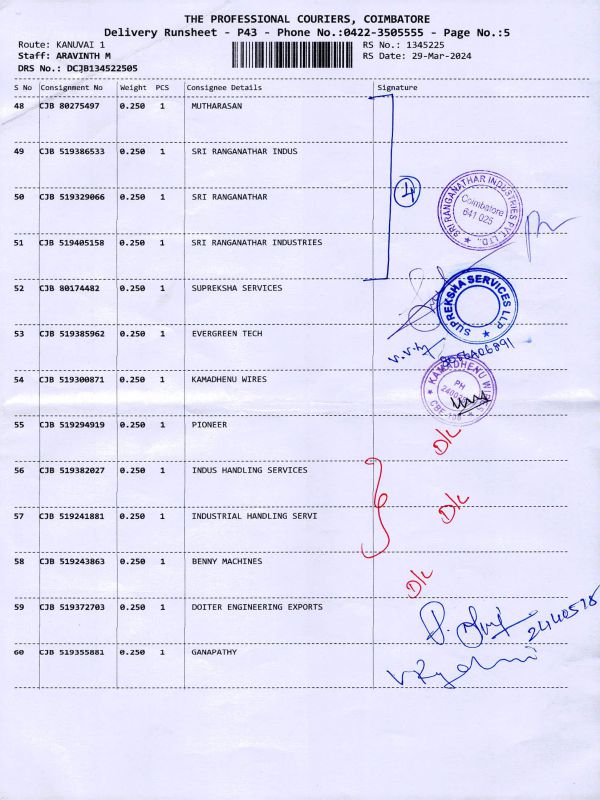 THE PROFESSIONAL COURIERS, COIMBATORE
Delivery Runsheet - P43 - Phone No.:0422-3505555 - Page No.:5
Route: KANUVAI 1 RS No.: 1345225
Staff: ARAVINTH M RS Date: 29-Mar-2024
DRS No.: DCJB134522505
S No Consignment No Weight PCS Consignee Details Signature
48 CJB 80275497 0.250 1 MUTHARASAN
49 CJB 519386533 0.250 1 SRI RANGANATHAR INDUS
4
50 CJB 519329066 0.250 1 SRI RANGANATHAR
SRI RANGANATHAR INDUSTRIES PVT. LTD.,
Coimbatore
641 025
51 CJB 519405158 0.250 1 SRI RANGANATHAR INDUSTRIES
52 CJB 80174482 0.250 1 SUPREKSHA SERVICES
SUPREKSHA SERVICES LLP.
53 CJB 519385962 0.250 1 EVERGREEN TECH
54 CJB 519300871 0.250 1 KAMADHENU WIRES
KAMADHENU WIRES
PH
55 CJB 519294919 0.250 1 PIONEER
D/L
56 CJB 519382027 0.250 1 INDUS HANDLING SERVICES
57 CJB 519241881 0.250 1 INDUSTRIAL HANDLING SERVI
D/L
58 CJB 519243863 0.250 1 BENNY MACHINES
D/L
59 CJB 519372703 0.250 1 DOITER ENGINEERING EXPORTS
60 CJB 519355881 0.250 1 GANAPATHY